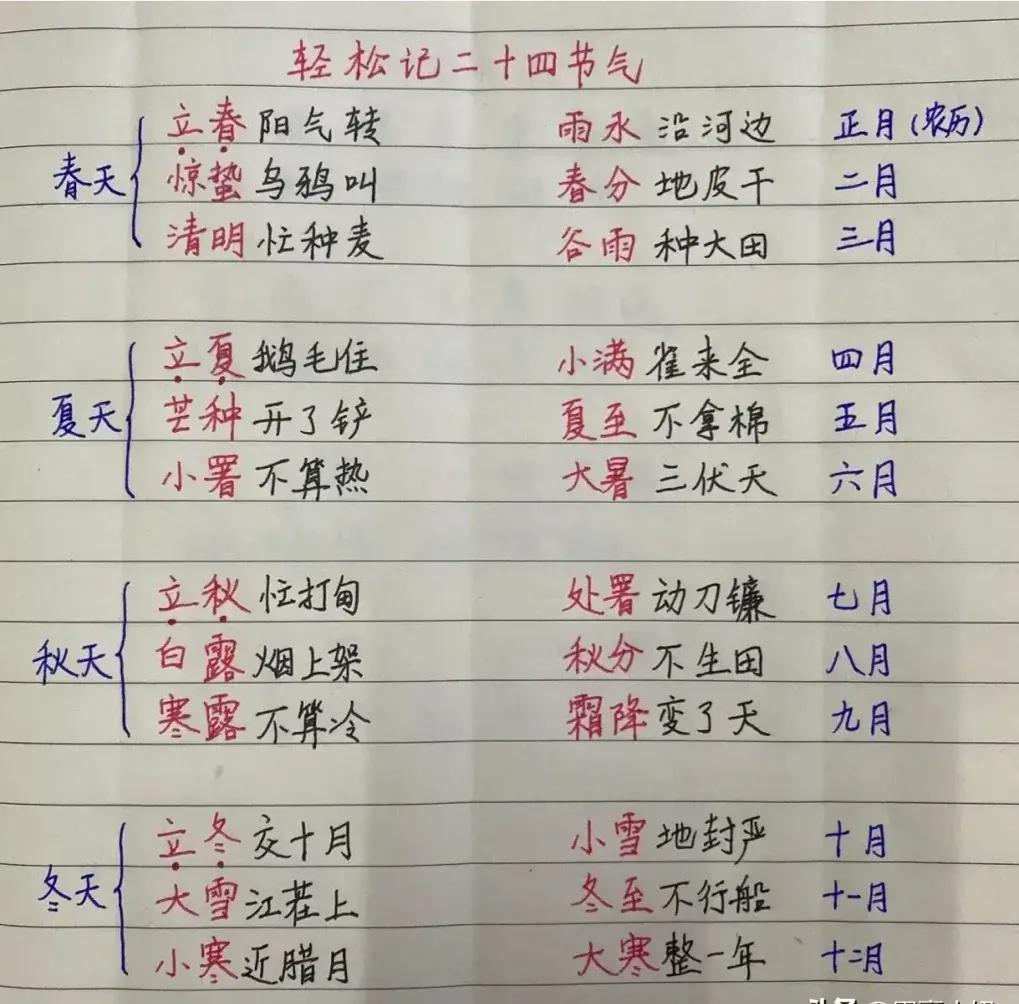 轻松记二十四节气
立春 阳气转 雨水 沿河边 正月(农历)
春天 惊蛰 乌鸦叫 春分 地皮干 二月
清明 忙种麦 谷雨 种大田 三月
立夏 鹅毛住 小满 雀来全 四月
夏天 芒种 开了铲 夏至 不拿棉 五月
小署 不算热 大暑 三伏天 六月
立秋 忙打甸 处署 动刀镰 七月
秋天 白露 烟上架 秋分 不生田 八月
寒露 不算冷 霜降 变了天 九月
立冬 交十月 小雪 地封严 十月
冬天 大雪 江茬上 冬至 不行船 十一月
小寒 近腊月 大寒 整一年 十二月